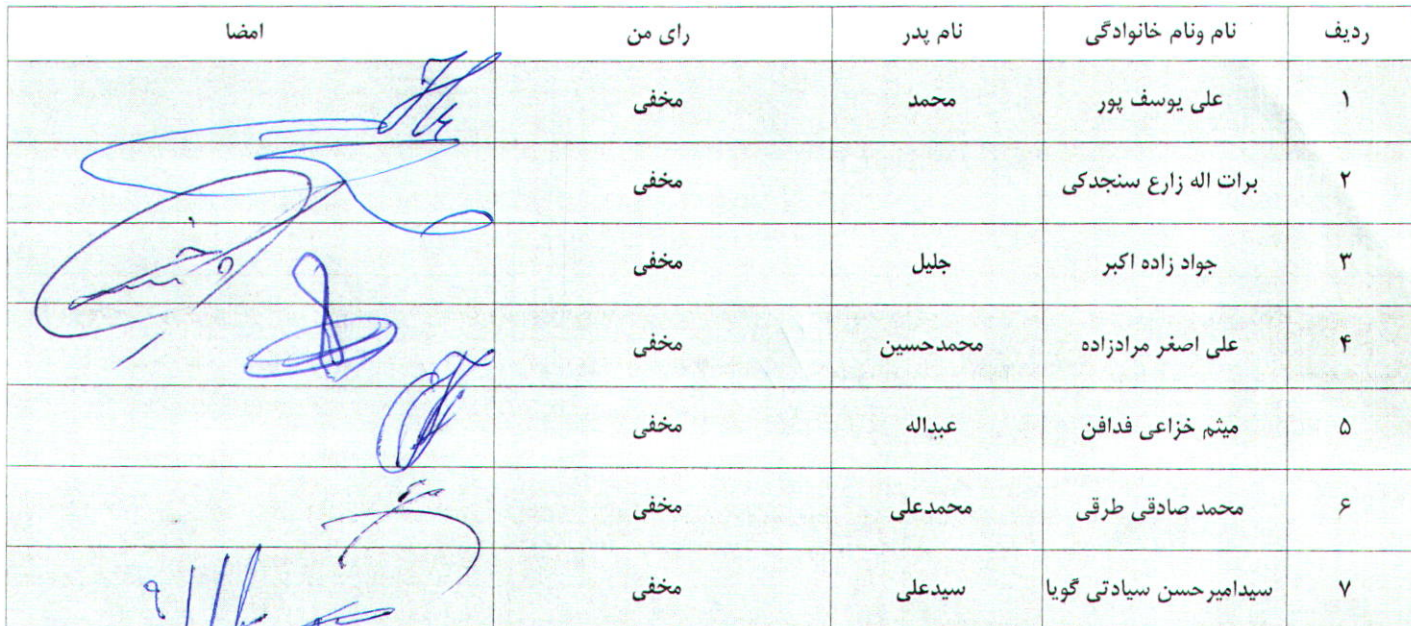 ردیف نام ونام خانوادگی نام پدر رای من امضا
۱ علی یوسف پور محمد مخفی
۲ برات اله زارع سنجدکی مخفی
۳ جواد زاده اکبر جلیل مخفی
۴ علی اصغر مرادزاده محمدحسین مخفی
۵ میثم خزاعی فدافن عبداله مخفی
۶ محمد صادقی طرقی محمدعلی مخفی
۷ سیدامیرحسن سیادتی گویا سیدعلی مخفی